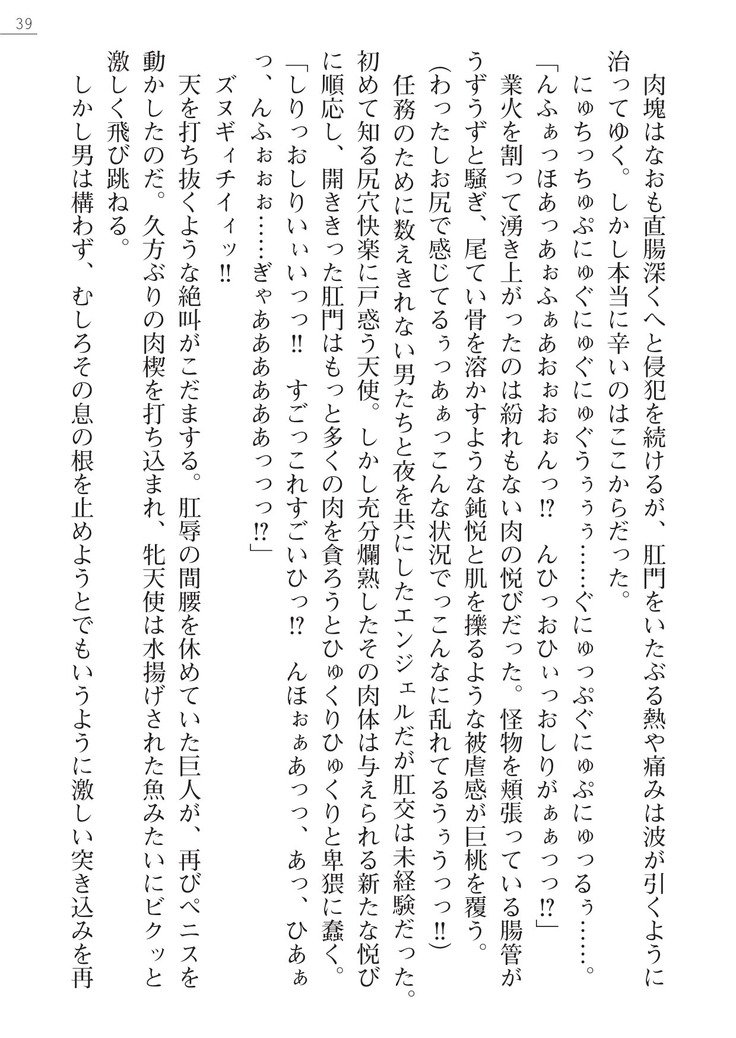 39
肉塊はなおも直腸深くへと侵犯を続けるが、肛門をいたぶる熱や痛みは波が引くように
治ってゆく。しかし本当に辛いのはここからだった。
にゅちっちゅぷにゅぐにゅぐにゅぐうぅぅ……ぐにゅっぷぐにゅぷにゅっるぅ……。
「んふぁっほあっあぉふぁあおぉおぉんっ!?　んひっおひぃっおしりがぁぁっっ!?」
業火を割って湧き上がったのは紛れもない肉の悦びだった。怪物を頬張っている腸管が
うずうずと騒ぎ、尾てい骨を溶かすような鈍悦と肌を擽るような被虐感が巨桃を覆う。
（わったしお尻で感じてるぅっあぁっこんな状況でっこんなに乱れてるうぅうっっ!!）
任務のために数えきれない男たちと夜を共にしたエンジェルだが肛交は未経験だった。
初めて知る尻穴快楽に戸惑う天使。しかし充分爛熟したその肉体は与えられる新たな悦び
に順応し、開ききった肛門はもっと多くの肉を貪ろうとひゅくりひゅくりと卑猥に蠢く。
「しりっおしりいぃいっっ!!　すごっこれすごいひっ!?　んほぉぁあっっ、あっ、ひあぁ
っ、んふぉぉぉ……ぎゃああああああっっっ!?」
ズヌギィチイィッ!!
天を打ち抜くような絶叫がこだまする。肛辱の間腰を休めていた巨人が、再びペニスを
動かしたのだ。久方ぶりの肉楔を打ち込まれ、牝天使は水揚げされた魚みたいにビクッと
激しく飛び跳ねる。
しかし男は構わず、むしろその息の根を止めようとでもいうように激しい突き込みを再